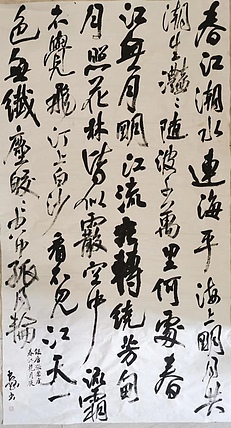 春江潮水連海平海上明月共
潮生灩々隨波千萬里何處春
江無月明江流宛轉繞芳甸
月照花林皆似霰空中流霜
不覺飛汀上白沙看不見江天一
色無纖塵皎々空中孤月輪
錄唐張若虛
春江花月夜